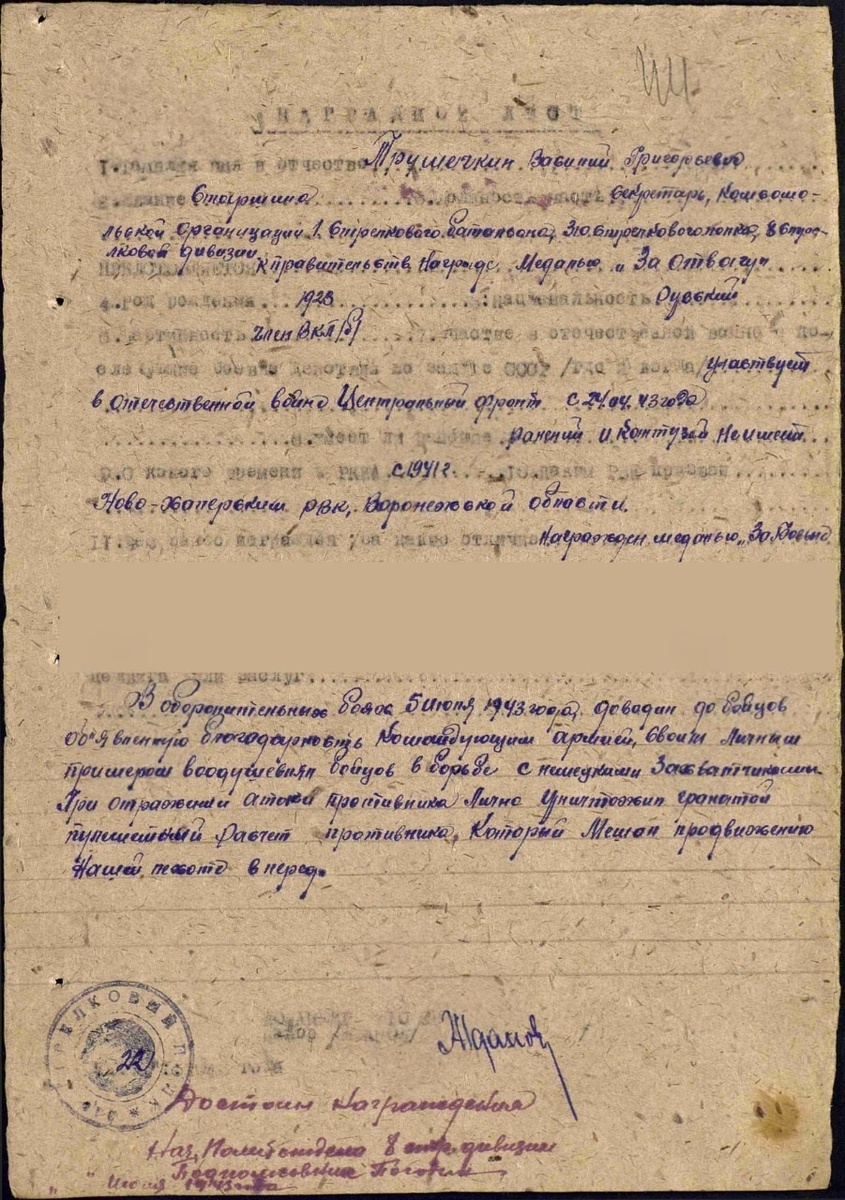 НАГРАДНОЙ ЛИСТ
1. Фамилия имя и отчество Трушечкин Василий Григорьевич
2. Звание Старшина 3. Должность, часть секретарь, комсомо-
льской организации 1 стрелкового батальона, 310 стрелкового полка, 8 стре-
лковой дивизии
Представляется к правительств. награде Медалью „За Отвагу"
4. Год рождения 1923 5. Национальность Русский
6. Партийность член ВКП/б/ 7. Участие в отечественной войне и по-
следующие боевых действиях по защите СССР /где и когда/ участвует
в отечественной войне Центральный фронт с 24.04.43 года
8. Имеет ли ранения ранений и контузий не имеет
9. С какого времени в РККА с 1941 г. 10. Каким РВК призван
Ново-Хаперским рвк, Воронежской области.
11. Чем ранее награжден /за какие отличия Награжден медалью „За Боевые
подвига или заслуг
В оборонительных боях 5 июля 1943 года, доводил до бойцов
об'явленную благодарность Командующим армией, своим Личным
примером воодушевлял бойцов в борьбе с немецкими Захватчиками.
При отражении атаки противника Лично уничтожил гранатой
пулеметный Расчет противника, Который Мешал продвижению
Нашей пехоте вперед.
СТРЕЛКОВЫЙ ПОЛК
310
22
Жданов
Достоин награждения
Нач. Политотдела 8 стр. дивизии
Подполковник
" " Июля 1943 года